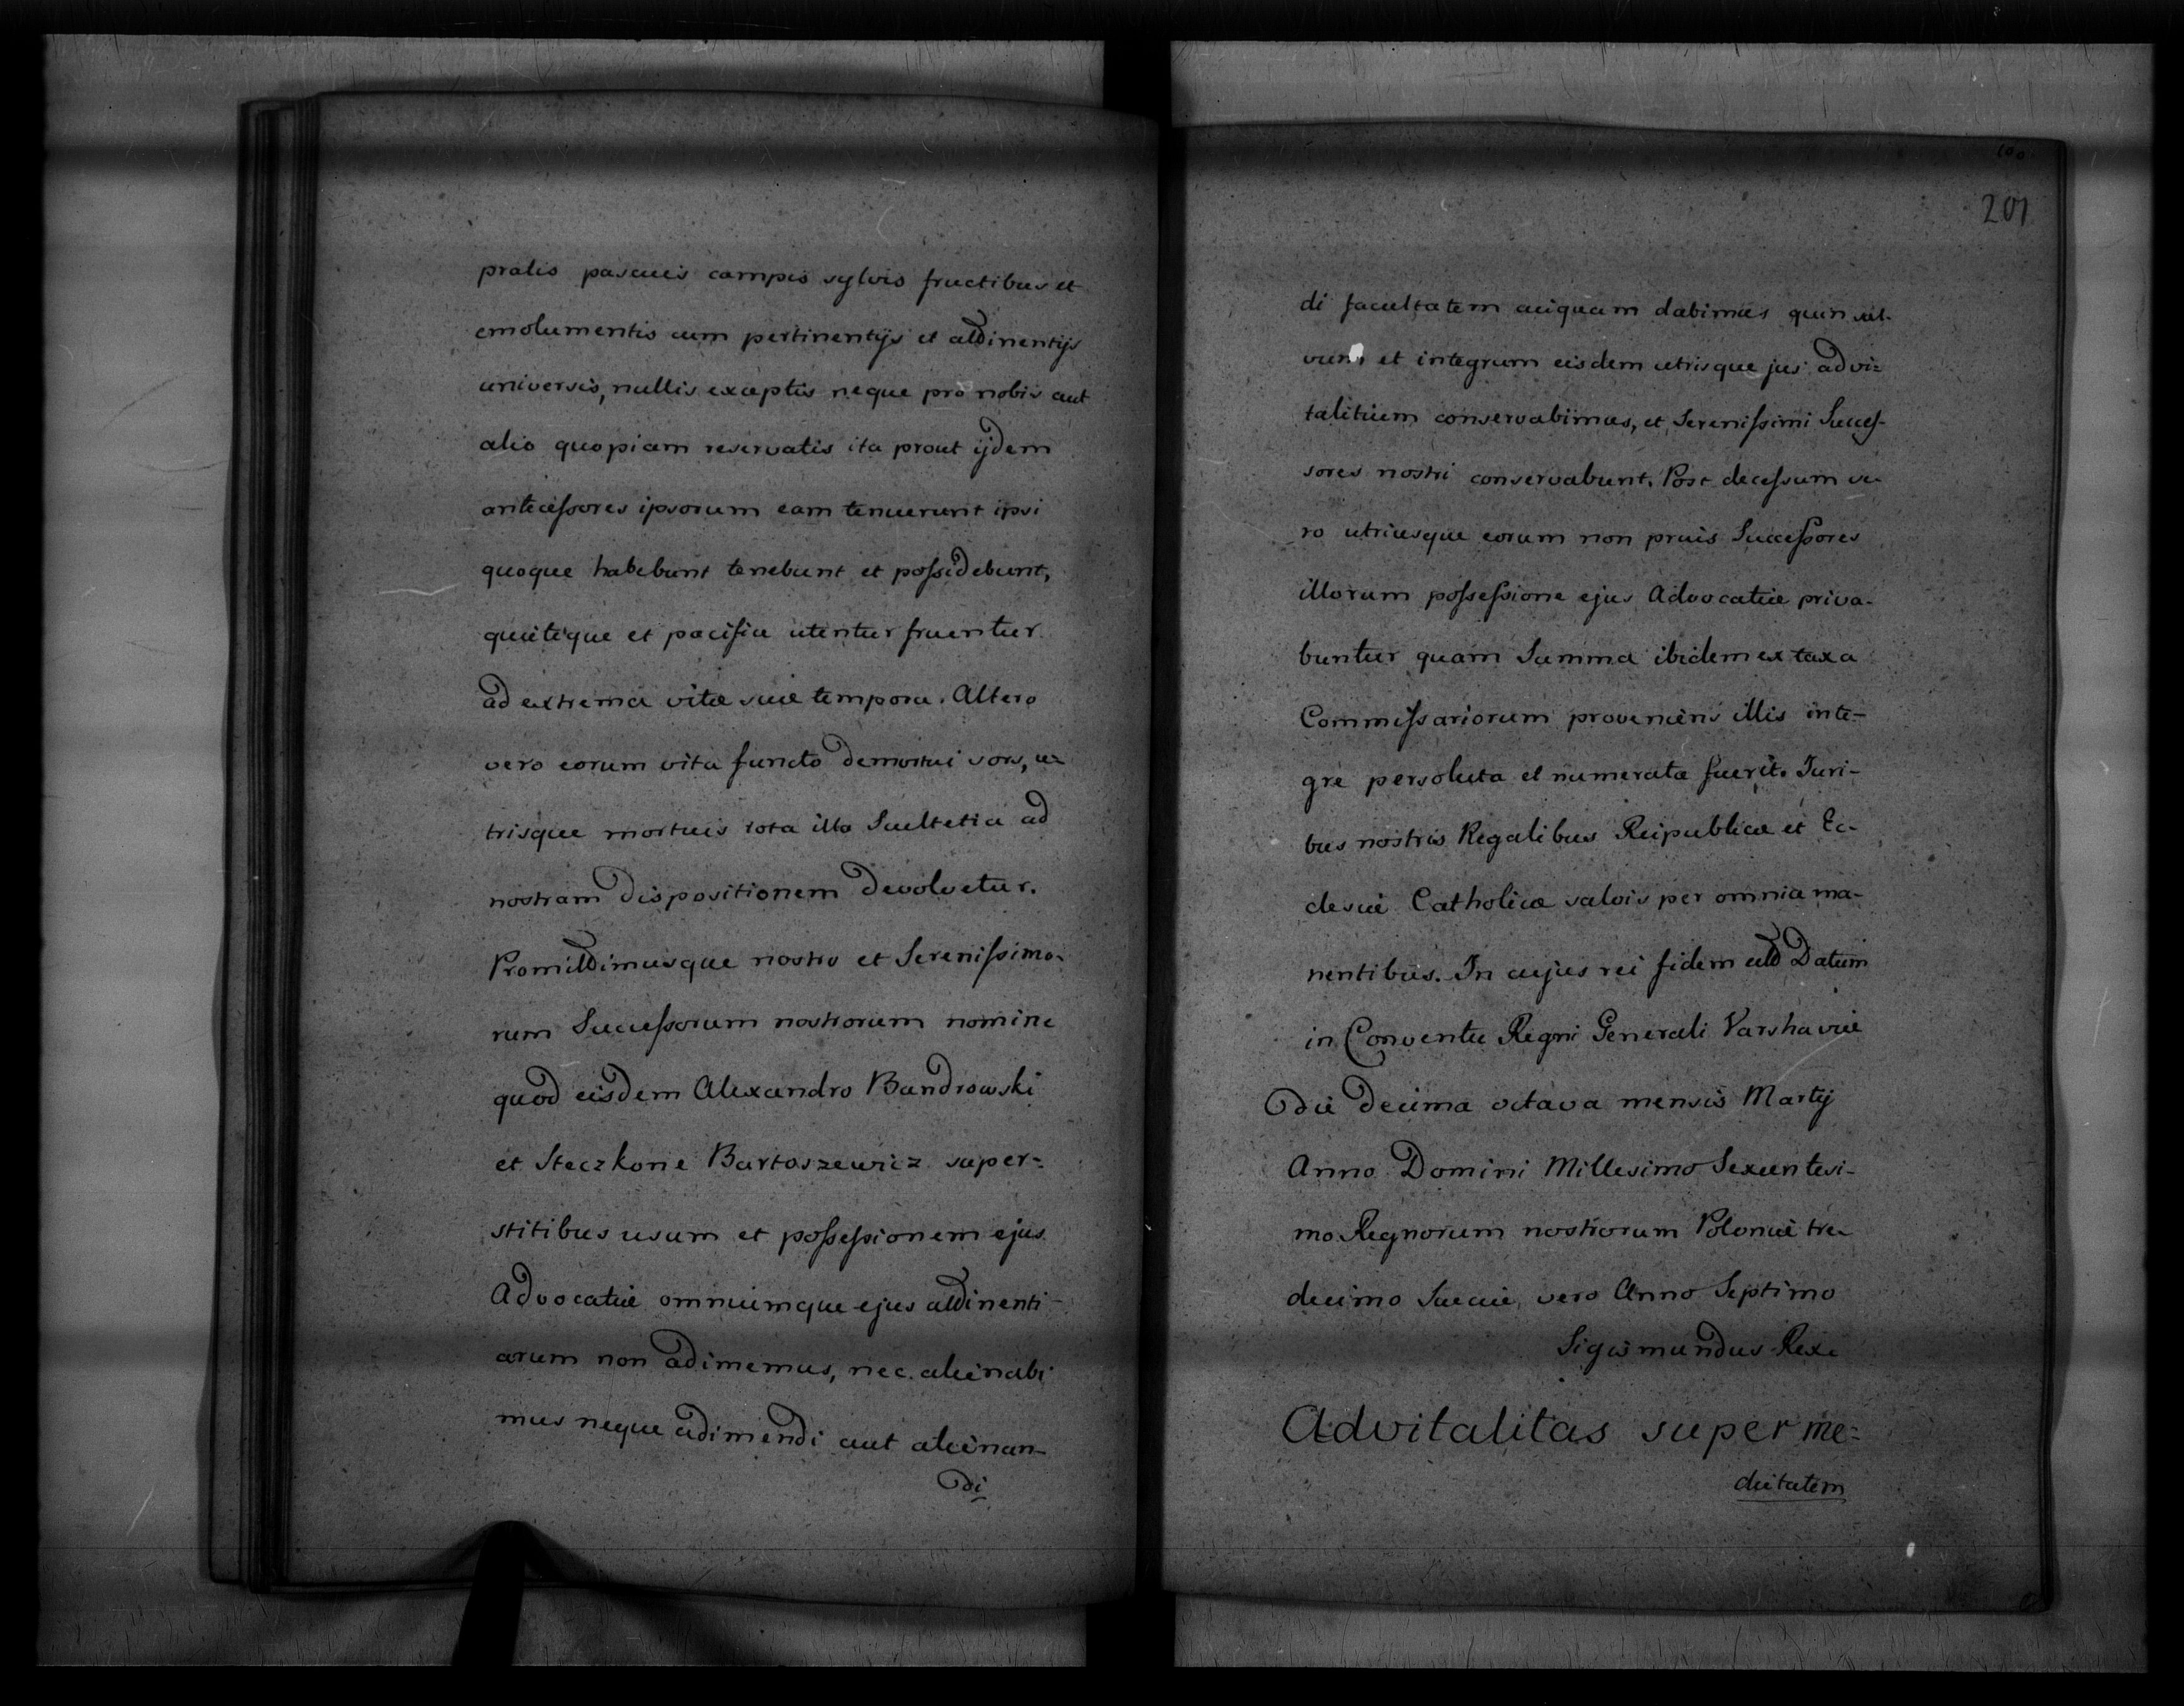 pratis pascuis campis sylvis fructibus et
emolumentis cum pertinentijs et attinentijs
universis, nullis exceptis neque pro nobis aut
alio quopiam reservatis ita prout ijdem
antecessores ipsorum eam tenuerunt ipsi
quoque habebunt tenebunt et possidebunt,
quieteque et pacifice utentur fruentur
ad extrema vitæ suæ tempora. Altero
vero eorum vita functo demortui sors, u=
trisque mortuis tota illa Scultetia ad
nostram dispositionem devolvetur.
Promittimusque nostro et Serenissimo-
rum Successorum nostrorum nomine
quod eisdem Alexandro Bandrowski
et Steczkone Bartoszewicz super=
stitibus usum et possessionem ejus
Advocatiæ omniumque ejus attinenti-
arum non adimemus, nec alienabi
mus neque adimendi aut alienan-
di
100
201
di facultatem cuiquam dabimus quin sal-
vum et integrum eisdem utrisque jus advi=
talitium conservabimus, et Serenissimi Succes-
sores nostri conservabunt. Post decessum ve-
ro utriusque eorum non prius Successores
illorum possessione ejus Advocatiæ priva-
buntur quam Summa ibidem ex taxa
Commissariorum proveniens illis inte-
gre persoluta et numerata fuerit. Juri-
bus nostris Regalibus Reipublicæ et Ec-
clesiæ Catholicæ salvis per omnia ma-
nentibus. In cujus rei fidem ett Datum
in Conventu Regni Generali Varshaviæ
die decima octava mensis Martij
Anno Domini Millesimo Sexcentesi-
mo Regnorum nostrorum Poloniæ tre-
decimo Sueciæ vero Anno Septimo
Sigismundus Rex.
Advitalitas super me=
dietatem